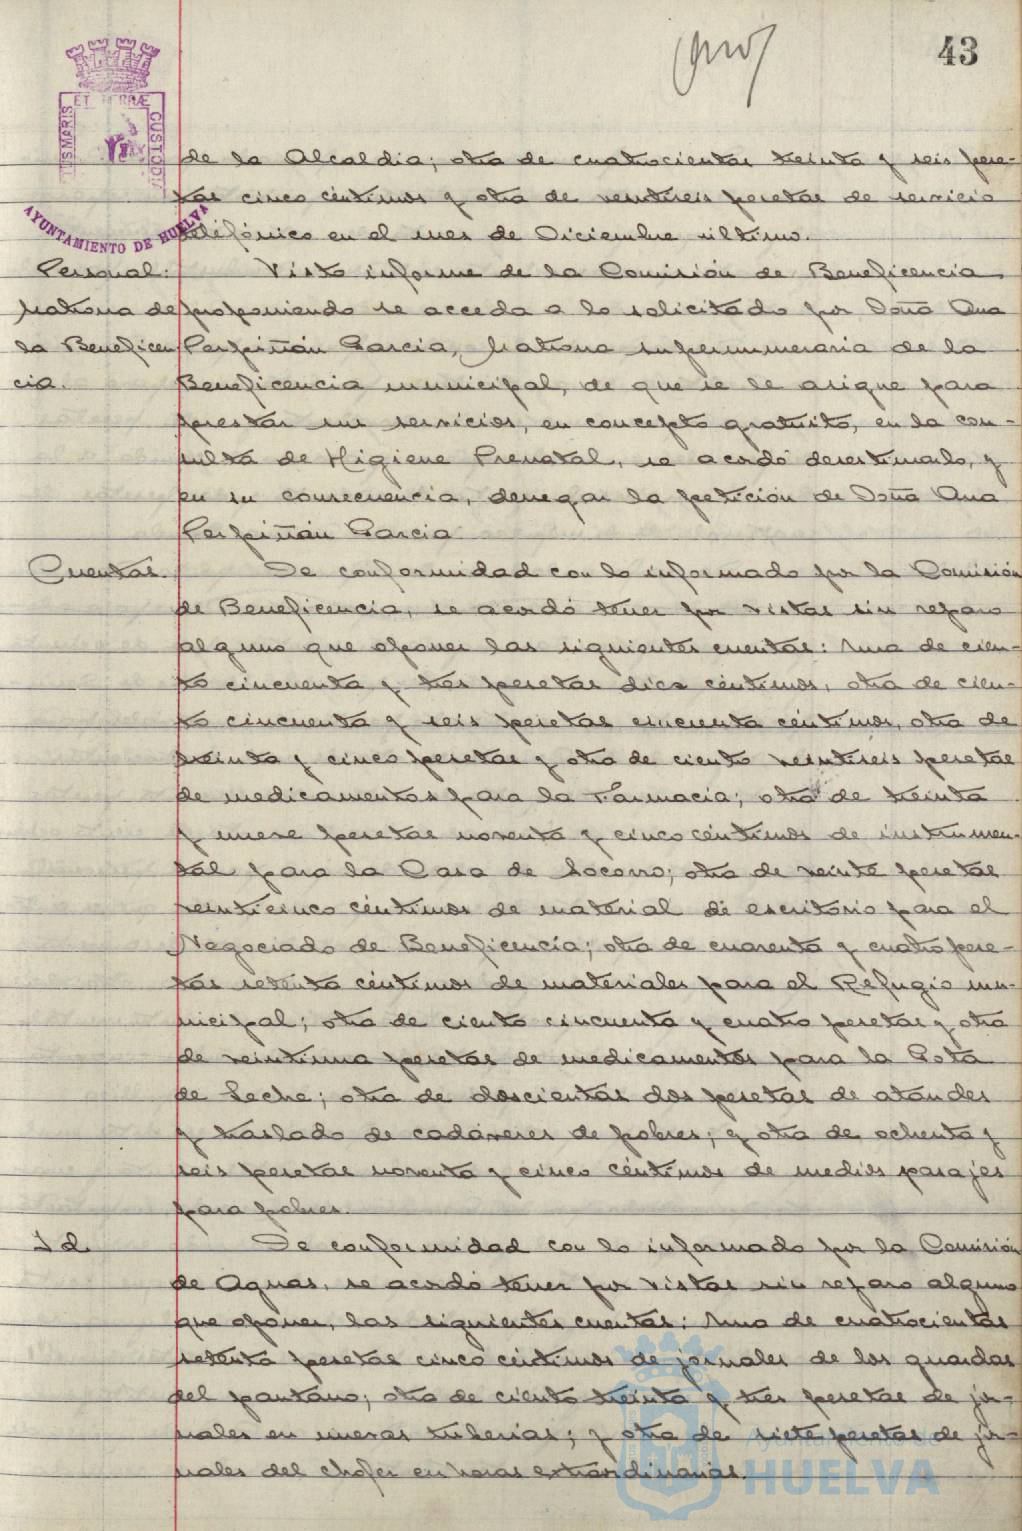 43
ET TERRÆ
CUSTODIA
AYUNTAMIENTO DE HUELVA
de la Alcaldia; otra de cuatrocientas treinta y seis pese-
tas cinco céntimos y otra de veintiseis pesetas de servicio
telefónico en el mes de Diciembre último.
Personal: Visto informe de la Comisión de Beneficencia,
Matrona de proponiendo se acceda a lo solicitado por Doña Ana
la Beneficen Perpiñán Garcia, Matrona supernumeraria de la
cia. Beneficencia municipal, de que se le asigne para
prestar sus servicios, en concepto gratuito, en la con-
sulta de Higiene Prenatal, se acordó desestimarlo, y
en su consecuencia, denegar la petición de Doña Ana
Perpiñán Garcia
Cuentas. De conformidad con lo informado por la Comisión
de Beneficencia, se acordó tener por vistas sin reparo
alguno que oponer las siguientes cuentas: Una de cien-
to cincuenta y tres pesetas diez céntimos, otra de cien-
to cincuenta y seis pesetas cincuenta céntimos, otra de
treinta y cinco pesetas y otra de ciento veintiseis pesetas
de medicamentos para la Farmacia; otra de treinta
y nueve pesetas noventa y cinco céntimos de instrumen-
tal para la Casa de Socorro; otra de veinte pesetas
veinticinco céntimos de material de escritorio para el
Negociado de Beneficencia; otra de cuarenta y cuatro pese-
tas setenta céntimos de materiales para el Refugio mu-
nicipal; otra de ciento cincuenta y cuatro pesetas y otra
de veintiuna pesetas de medicamentos para la Gota
de Leche; otra de doscientas dos pesetas de ataudes
y traslado de cadáveres de pobres; y otra de ochenta y
seis pesetas noventa y cinco céntimos de medios pasajes
para pobres.
Id. De conformidad con lo informado por la Comisión
de Aguas, se acordó tener por vistas sin reparo alguno
que oponer, las siguientes cuentas: Una de cuatrocientas
setenta pesetas cinco céntimos de jornales de los guardas
del pantano; otra de ciento treinta y tres pesetas de jor-
nales en nuevas tuberias; y otra de siete pesetas de jor-
nales del chofer en horas extraordinarias.
Ayuntamiento de
HUELVA